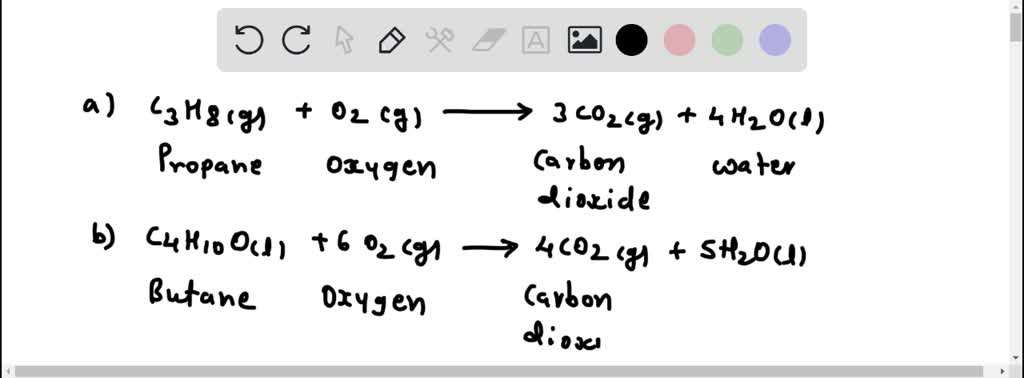 a) C3H8(g) + O2(g) ⟶ 3CO2(g) + 4H2O(l)
Propane Oxygen Carbon water
dioxide
b) C4H10O(l) + 6O2(g) ⟶ 4CO2(g) + 5H2O(l)
Butane Oxygen Carbon
diox